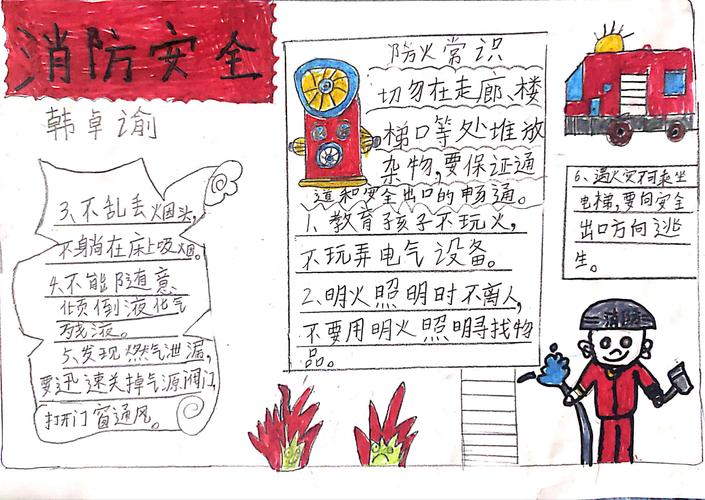 消防安全
韩卓谕
防火常识
切勿在走廊、楼
梯口等处堆放
杂物,要保证通
道和安全出口的畅通。
1、教育孩子不玩火,
不玩弄电气设备。
2、明火照明时不离人,
不要用明火照明寻找物
品。
3、不乱丢烟头,
不身尚在床上吸烟。
4、不能随意、
倾倒液化气
残液。
5、发现燃气泄漏,
要迅速关掉气源阀门,
打开门窗通风。
6、遇火灾不可乘坐
电梯,要向安全
出口方向逃
生。
消防